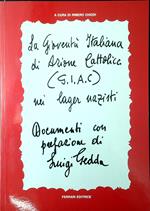 A CURA DI RIMERIO CHIODI
La Gioventù Italiana
di Azione Cattolica
(G.I.A.C)
nei lager nazisti
Documenti con
prefazione di
Luigi Gedda
FERRARI EDITRICE